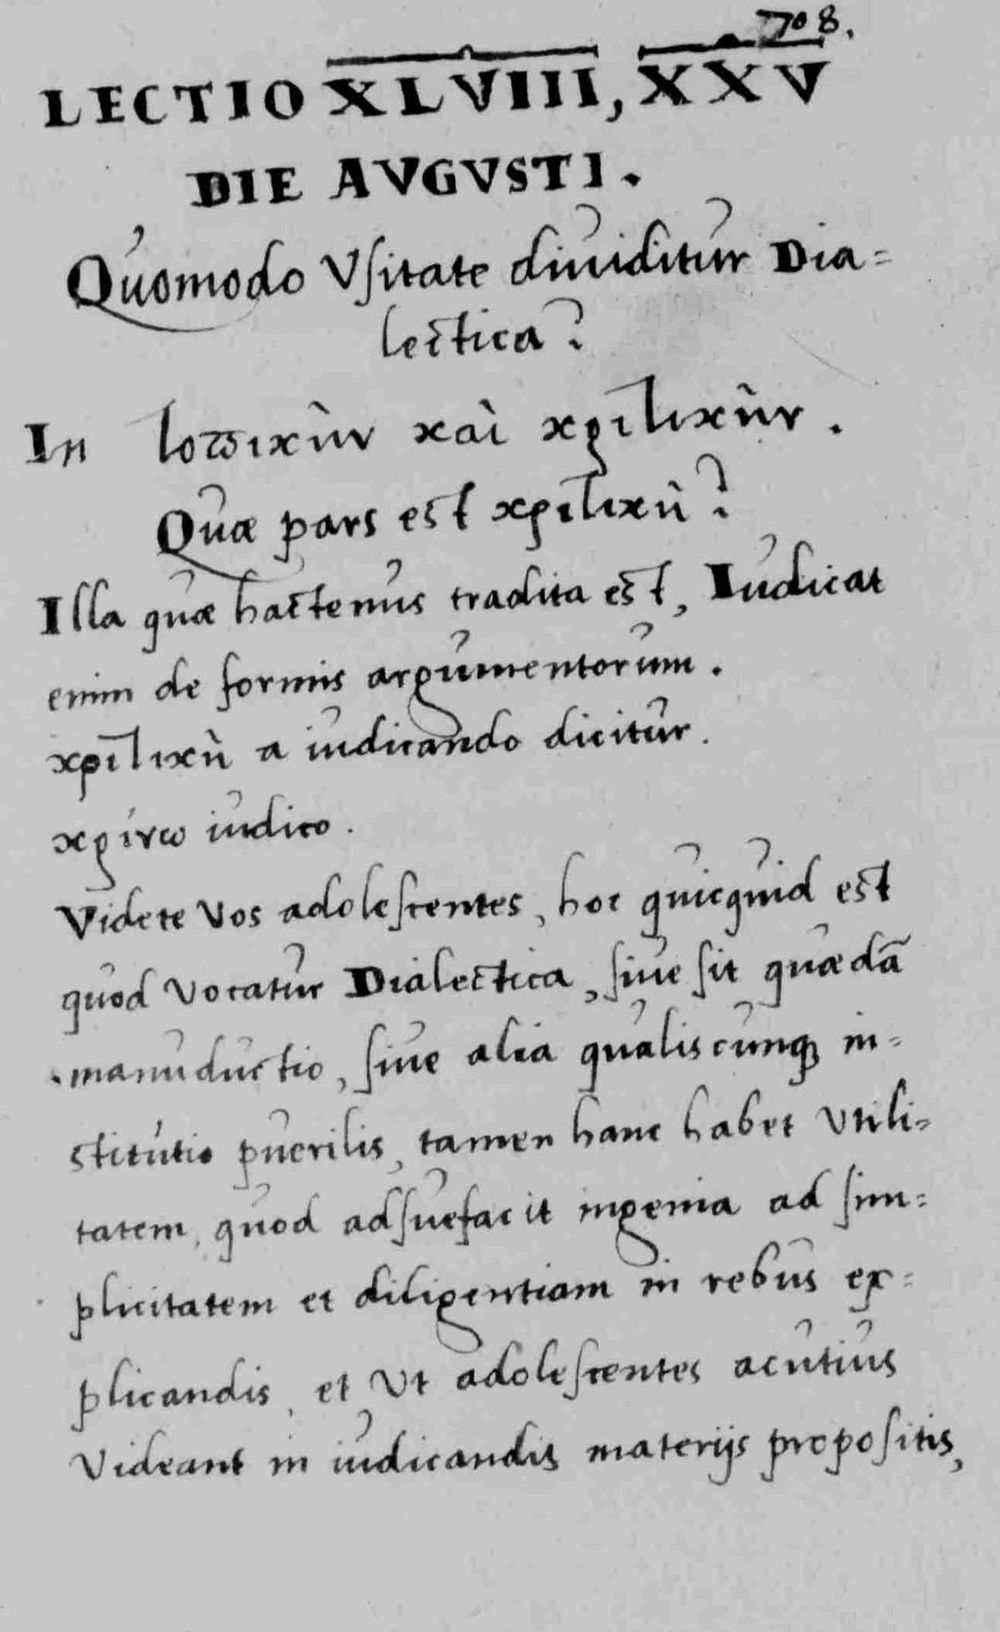 708.
LECTIO XLVIII, XXV
DIE AVGVSTI.
Quomodo Vsitate diuiditur Dia=
lectica?
In τοπικὴν καὶ κριτικὴν.
Quæ pars est κριτικὴ?
Illa quæ hactenus tradita est, Iudicat
enim de formis argumentorum.
κριτικὴ a iudicando dicitur.
κρίνω iudico.
Videte Vos adolescentes, hoc quicquid est
quod vocatur Dialectica, siue sit quædã
manuductio, siue alia qualiscunq; in=
stitutio puerilis, tamen hanc habet Vtili=
tatem, quod adsuefacit ingenia ad sim=
plicitatem et diligentiam in rebus ex=
plicandis, et Vt adolescentes acutius
Videant in iudicandis materijs propositis,